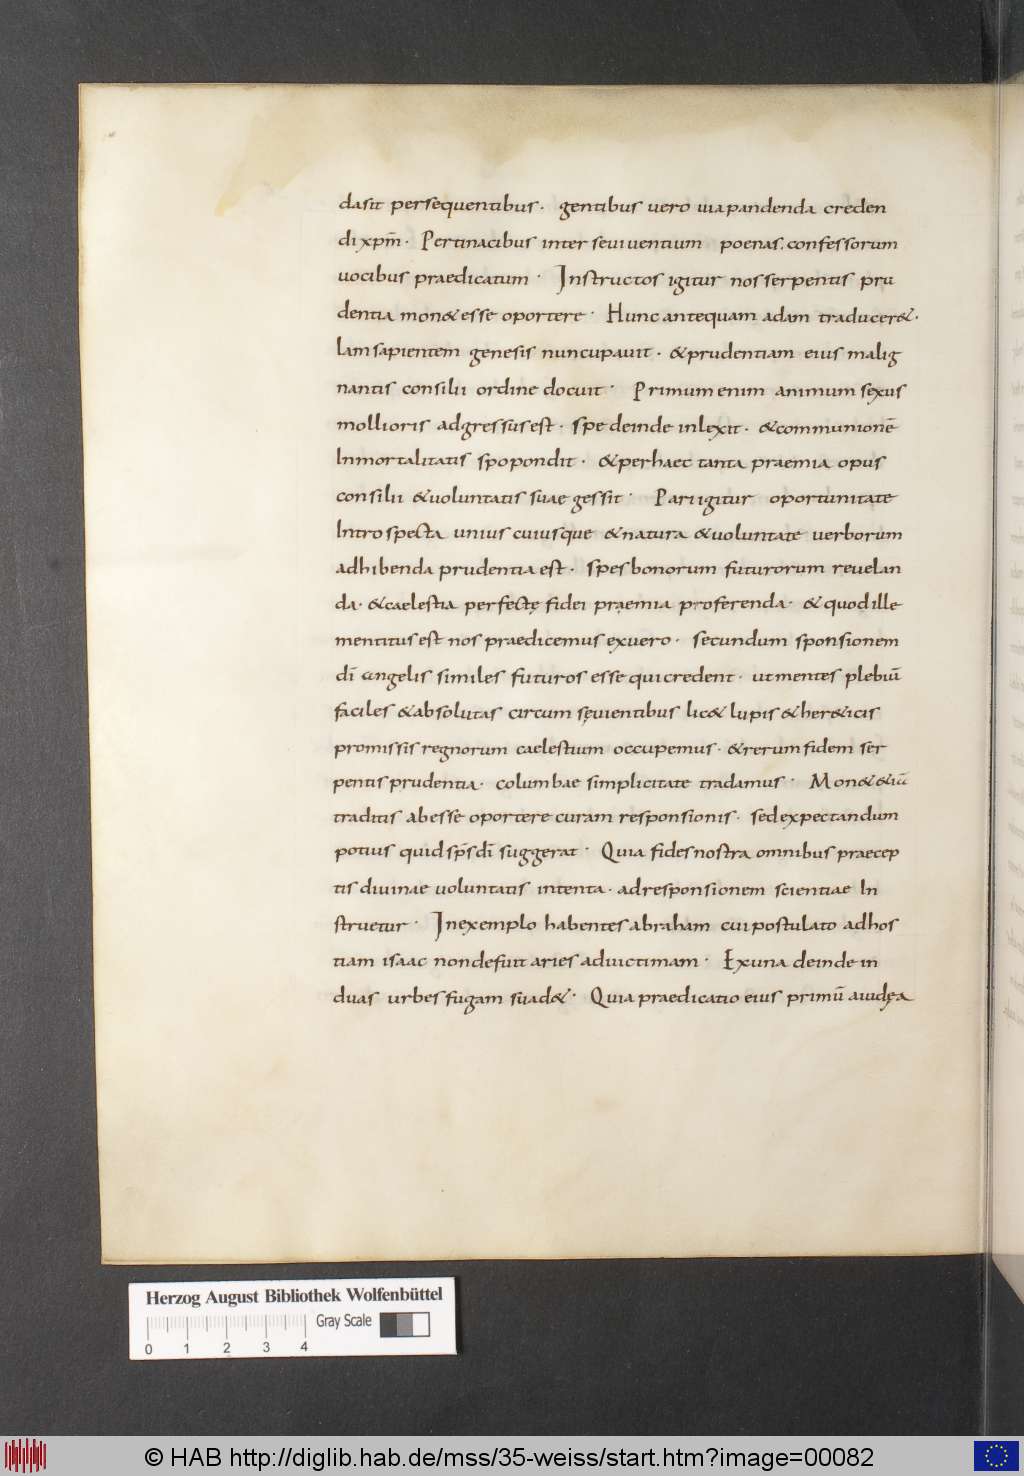 dasit persequentibus · gentibus uero uia pandenda creden
di xpm̄ · Pertinacibus inter seuiuentium poenas · confessorum
uocibus praedicatum · Instructos igitur nos serpentis pru
dentia mon& esse oportere · Hunc antequam adam traducer& ·
Iam sapientem genesis nuncupauit · & prudentiam eius malig
nantis consilii ordine docuit · Primum enim animum sexus
mollioris adgressus est · spe deinde inlexit · & communionē
Inmortalitatis spopondit · & per haec tanta praemia opus
consilii & uoluntatis suae gessit · Pari igitur oportunitate
Introspecta unius cuiusque & natura & uoluntate uerborum
adhibenda prudentia est · spes bonorum futurorum reuelan
da · & caelestia perfectę fidei praemia proferenda · & quod ille
mentitus est nos praedicemus ex uero · secundum sponsionem
dī angelis similes futuros esse qui credent · ut mentes plebiū
faciles & absolutas circum sęuientibus lic& lupis & her&icis
promissis regnorum caelestium occupemus · & rerum fidem ser
pentis prudentia · columbae simplicitate tradamus · Mon& &iā
traditis abesse oportere curam responsionis · sed expectandum
potius quid sp̄s dī suggerat · Quia fides nostra omnibus praecep
tis diuinae uoluntatis intenta · ad responsionem scientiae In
struetur · In exemplo habentes abraham cui postulato ad hos
tiam isaac non defuit aries ad uictimam · Ex una deinde in
duas urbes fugam suad& · Quia praedicatio eius primū a iudęa
Herzog August Bibliothek Wolfenbüttel
Gray Scale
0 1 2 3 4
© HAB http://diglib.hab.de/mss/35-weiss/start.htm?image=00082